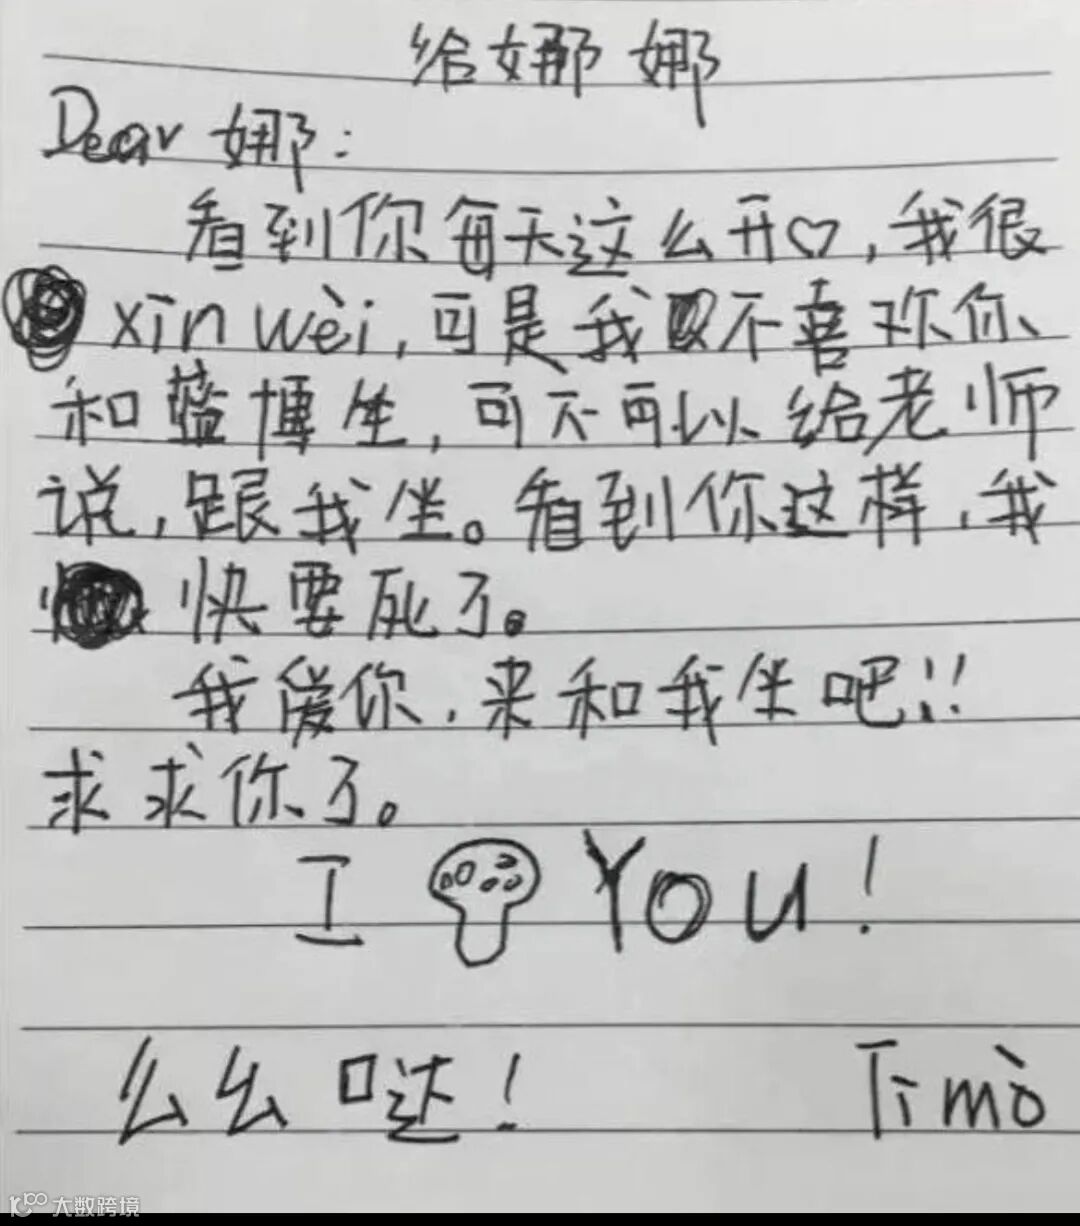 给娜娜
Dear 娜:
看到你每天这么开♡,我很
xīn wèi,可是我又不喜欢你
和蓝博坐,可不可以给老师
说,跟我坐。看到你这样,我
快要死了。
我爱你,来和我坐吧!!
求求你了。
I You!
么么哒! Timò
大数跨境